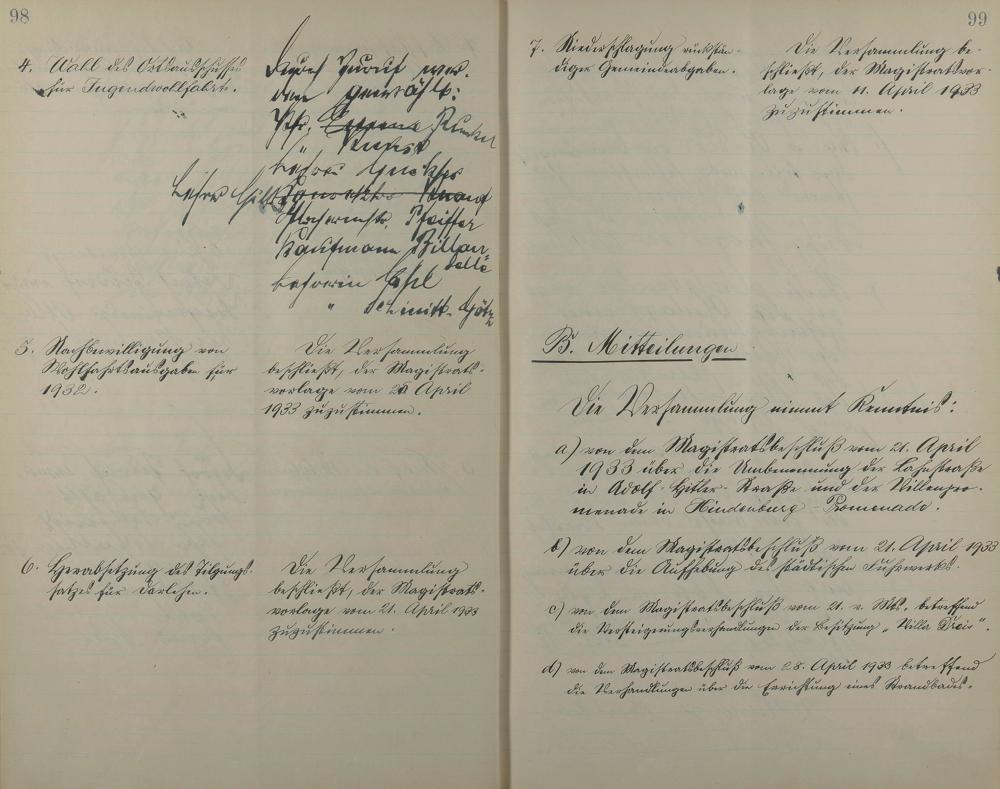 98
4. Wahl des Ortsausschusses
für Jugendwohlfahrt.
Durch Zuruf wur-
den gewählt:
Pfr.
Lehrer
Pfeiffer
Kaufmann Billan-
delle
Lehrerin Ohl
" Schmitt-Götz
5. Nachbewilligung von
Wohlfahrtsausgaben für
1932.
Die Versammlung
beschließt, der Magistrats-
vorlage vom April
1933 zuzustimmen.
6. Herabsetzung des Tilgungs-
satzes für Darlehen.
Die Versammlung
beschließt, der Magistrats-
vorlage vom 21. April 1933
zuzustimmen.
99
7. Niederschlagung rückstän-
diger Gemeindeabgaben.
Die Versammlung be-
schließt, der Magistratsvor-
lage vom 11. April 1933
zuzustimmen.
B. Mitteilungen
Die Versammlung nimmt Kenntnis:
a) von dem Magistratsbeschluß vom 21. April
1933 über die Umbenennung der Lahnstraße
in Adolf-Hitler-Straße und der Villenpro-
menade in Hindenburg-Promenade.
b) von dem Magistratsbeschluß vom 21. April 1933
über die Aufhebung des städtischen Fuhrwerks.
c) von dem Magistratsbeschluß vom 21. v. Mts. betreffend
die Versteigerungsverhandlungen der Besitzung „Villa
d) von dem Magistratsbeschluß vom 28. April 1933 betreffend
die Verhandlungen über die Errichtung eines Strandbades.